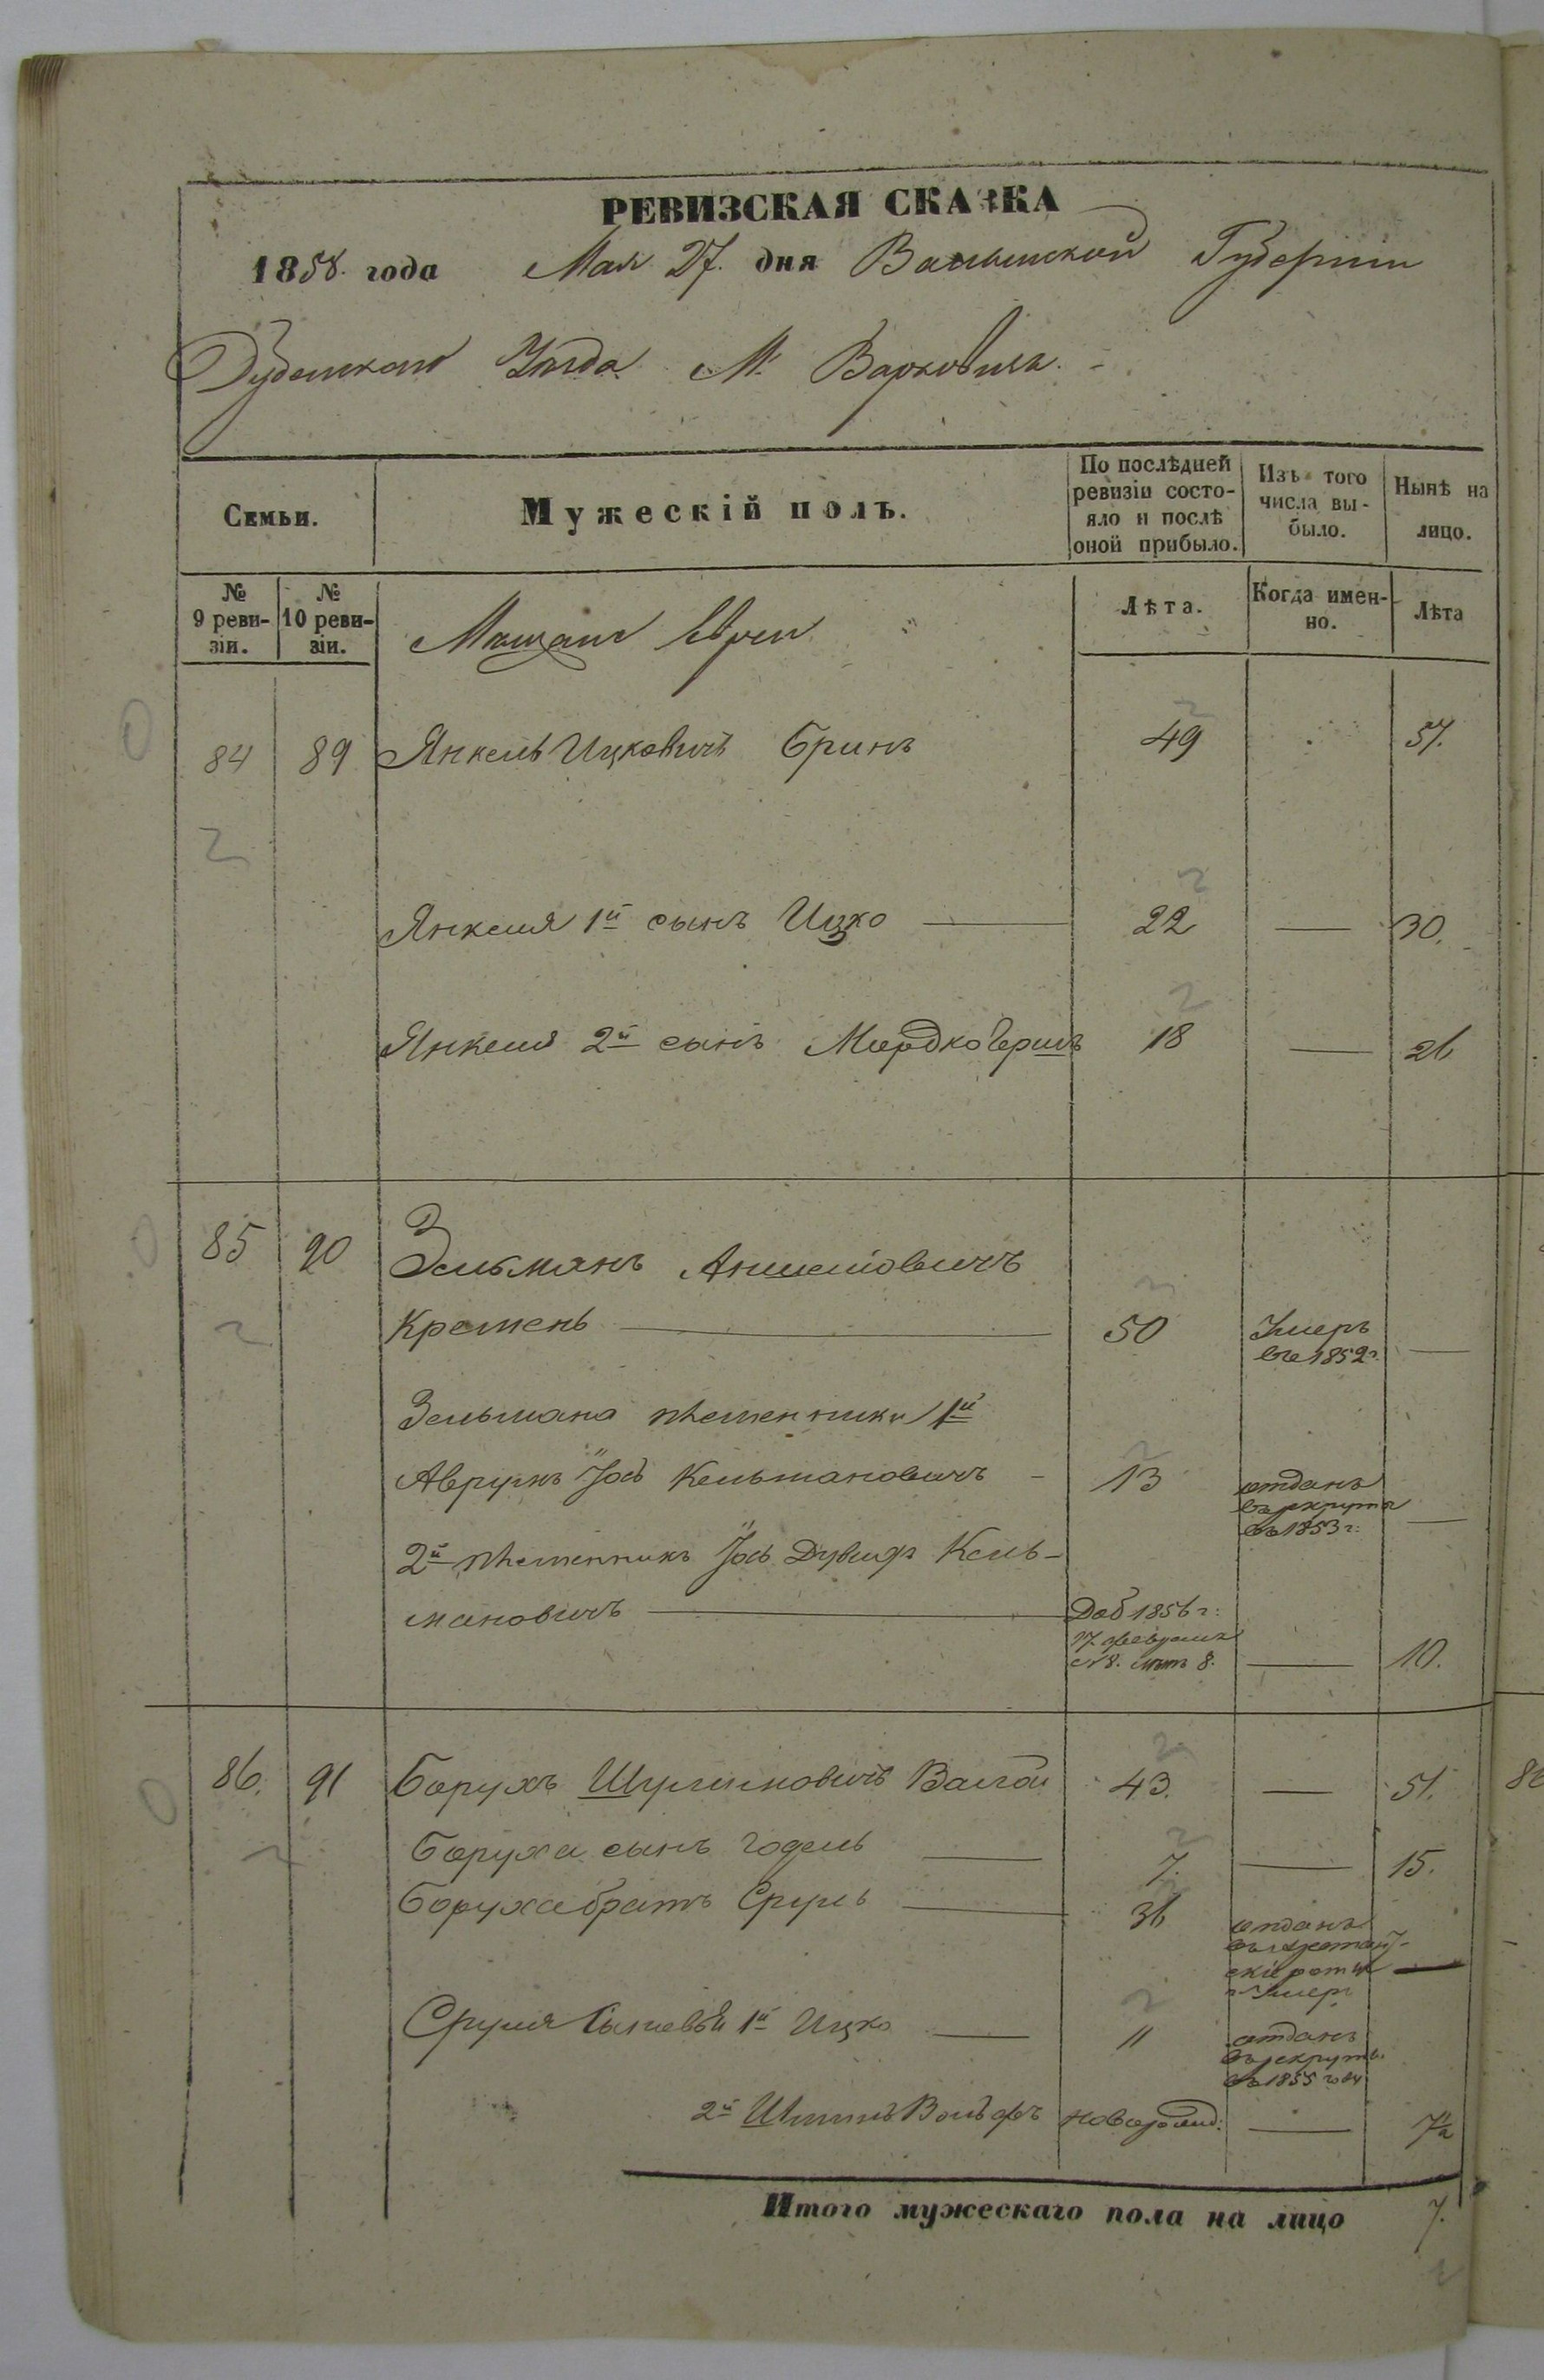 РЕВИЗСКАЯ СКАЗКА
1858. года Мая 27. дня Волынской Губернiи
Дубенскаго Уѣзда М. Варковичъ.
Семьи.
Мужескiй полъ.
По послѣдней
ревизiи состо-
яло и послѣ
оной прибыло.
Изъ того
числа вы-
было.
Нынѣ на
лицо.
№
9 реви-
зiи.
№
10 реви-
зiи.
Мѣщане Евреи
Лѣта.
Когда имен-
но.
Лѣта
84 89 Янкель Ицковичъ Бринъ 49 57.
Янкеля 1й сынъ Ицко — 22 — 30.
Янкеля 2й сынъ Мордко Гершъ 18 — 26
85 90 Зельманъ Аншелiовичъ
Кремень — 50 Умеръ
въ 1852г. —
Зельмана племенники 1й
Аврумъ Iось Кельмановичъ - 13 отданъ
въ рекруты
въ 1853 г: —
2й племенникъ Iось Дувидъ Кель-
мановичъ — Доб 1856 г:
17. февраля
№ 8. лѣтъ 8. — 10.
86. 91 Борухъ Шулимовичъ 43. — 51.
Боруха сынъ Годель — 7. — 15.
Боруха братъ Сруль — 36 отданъ
въ арестант-
скiе роты —
и Умеръ
Сруля Сыновья 1й Ицко — 11 отданъ
въ рекруты
въ 1855 году
2й Шлиома Вольфъ новорожд: — 7½
Итого мужескаго пола на лицо 7.